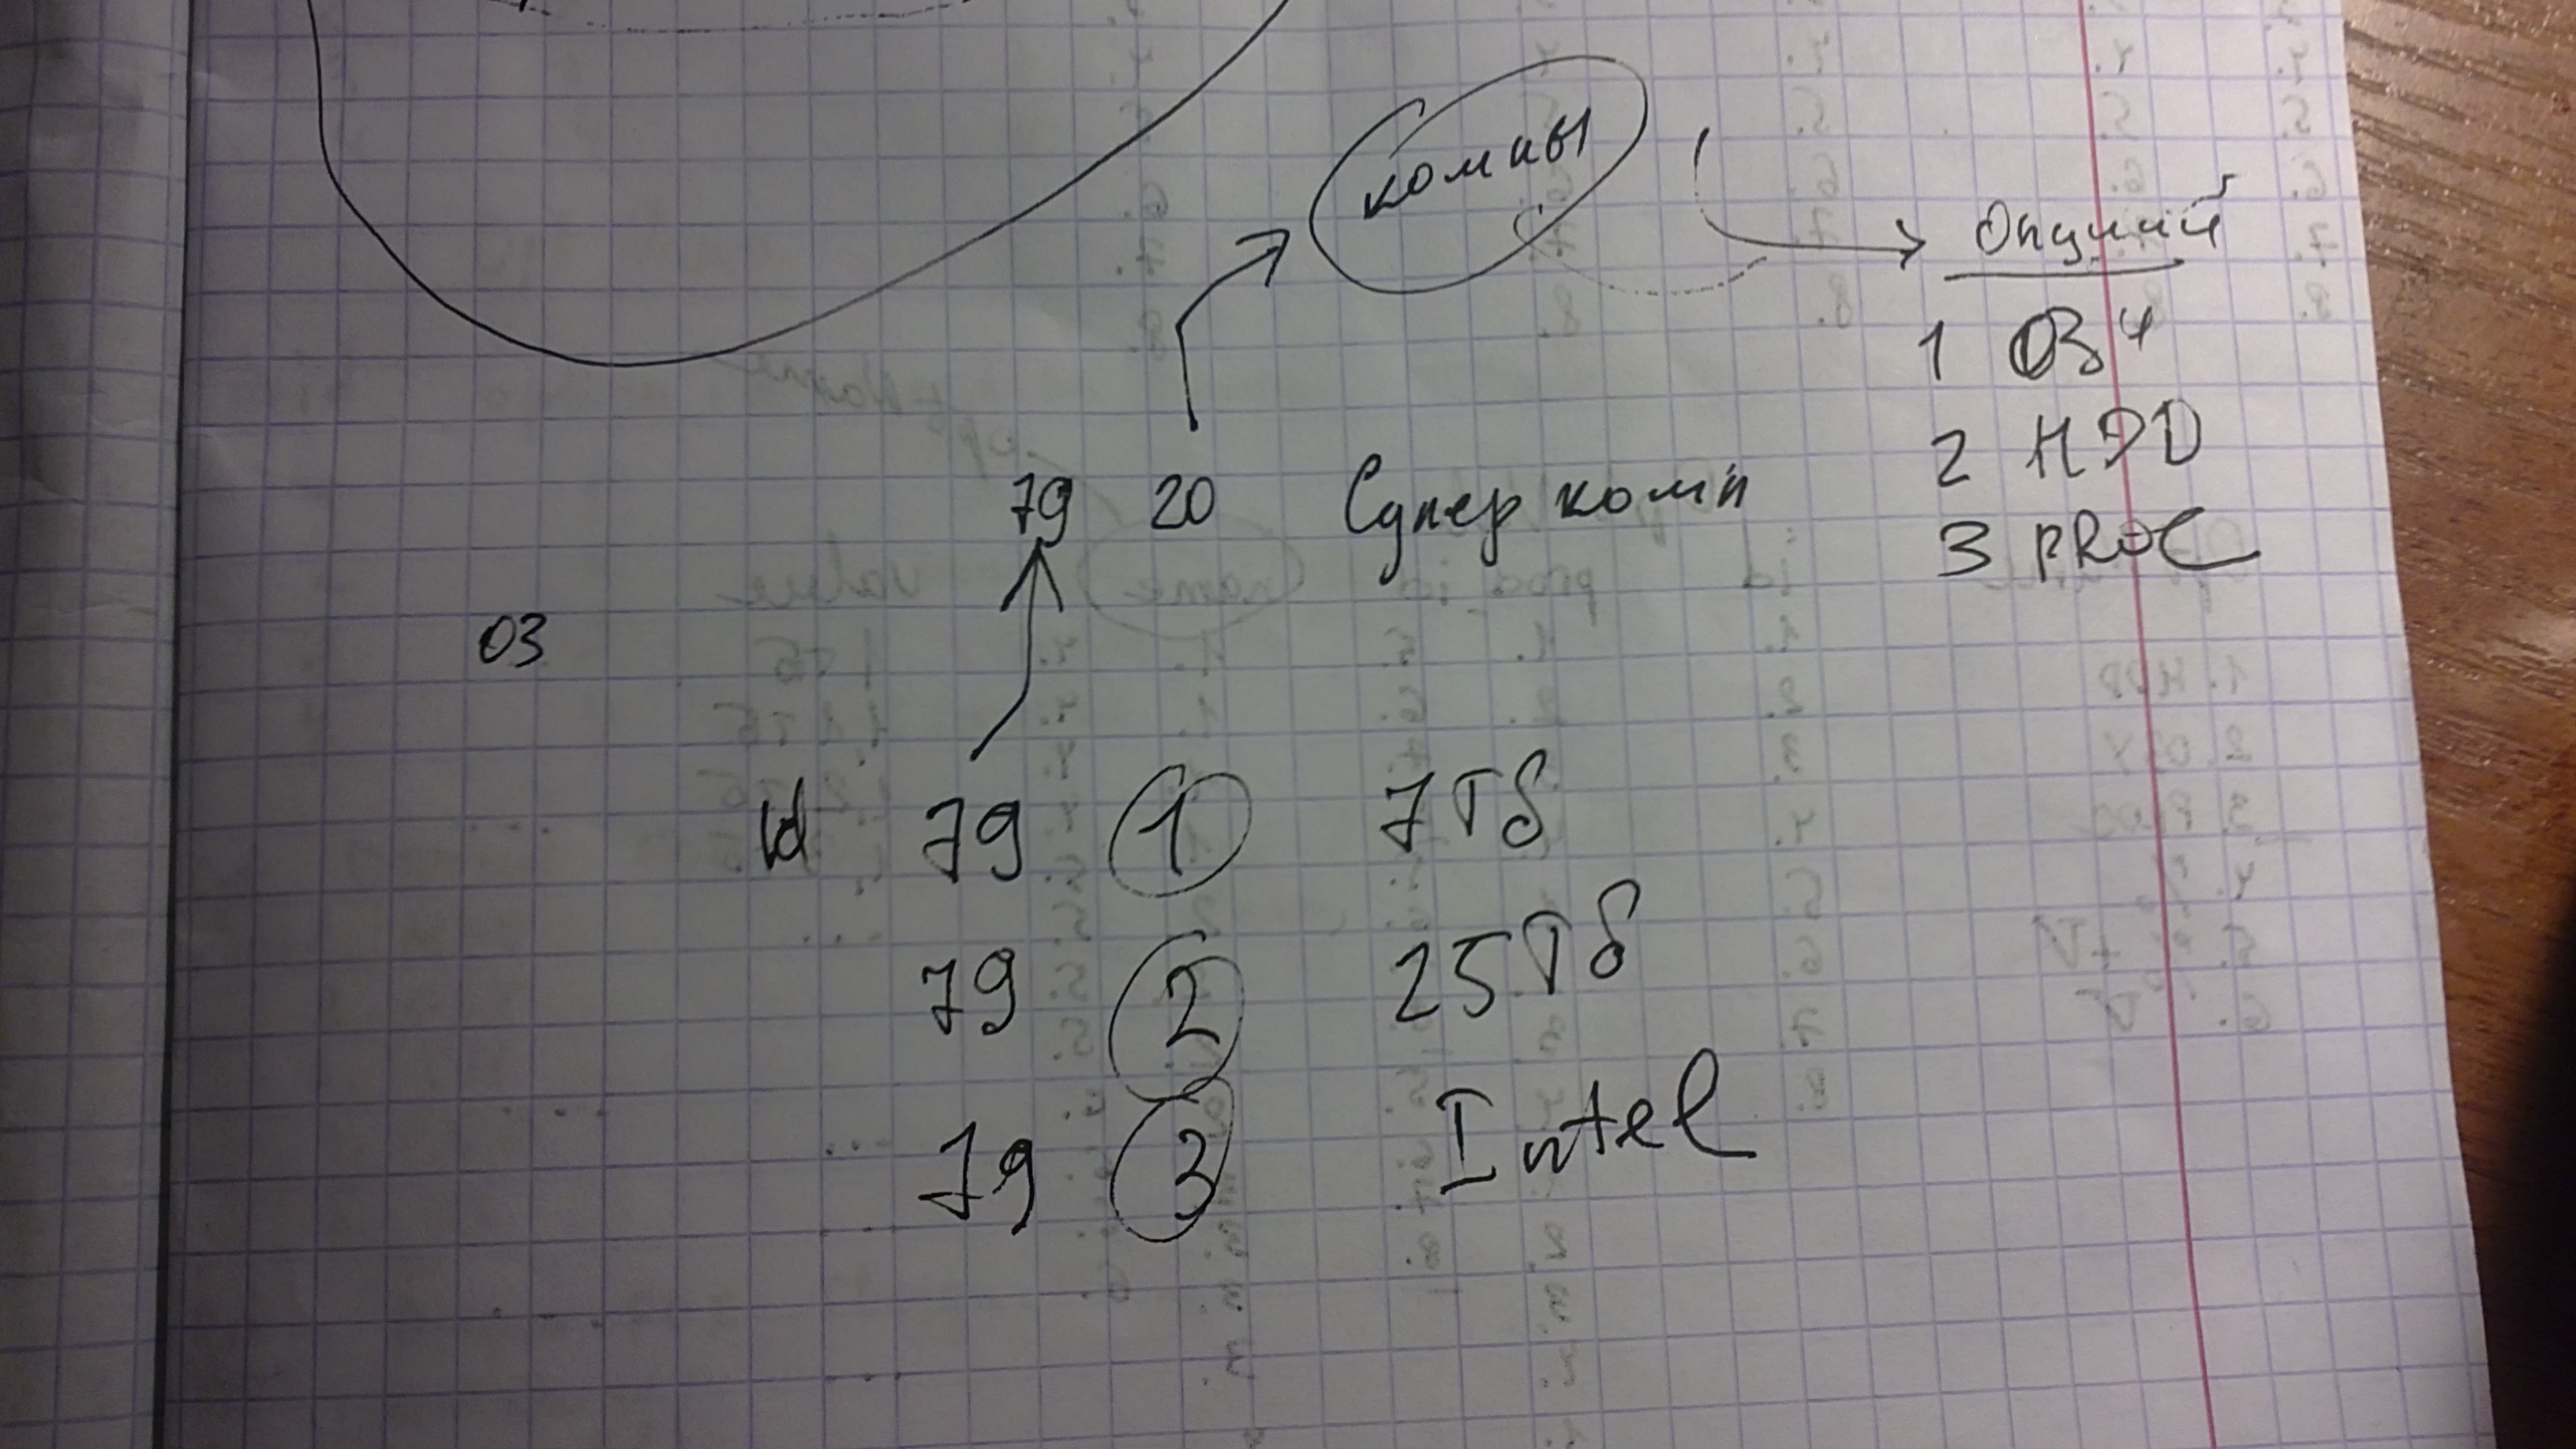 компы
Опции
1 ОЗУ
2 HDD
3 PROC
79 20 Супер комп
03
Id 79 1 7Тб
79 2 25Тб
79 3 Intel